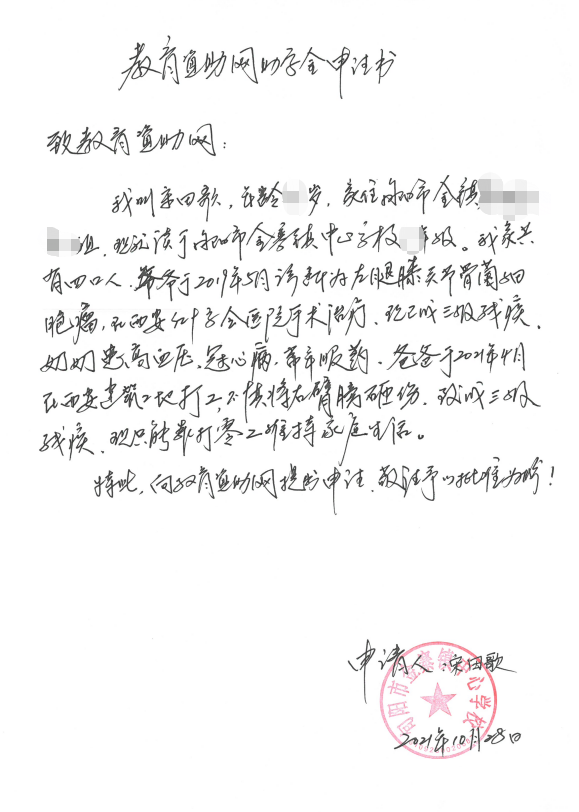 教育资助网助学金申请书
致教育资助网：
我叫宋田歌，年龄 岁，家住旬阳市金寨镇
组，现就读于旬阳市金寨镇中心学校 年级。我家共
有四口人，爷爷于2019年5月诊断为左腿膝关节骨菌细
胞瘤，在西安红十字会医院手术治疗，现已成三级残疾，
奶奶患高血压，冠心病，常年服药，爸爸于2021年4月
在西安建筑工地打工，不慎将右臂膀砸伤，致成三级
残疾，现只能靠打零工维持家庭生活。
特此，向教育资助网提出申请，敬请予以批准为盼！
申请人：宋田歌
旬阳市金寨镇中心学校
2021年10月28日